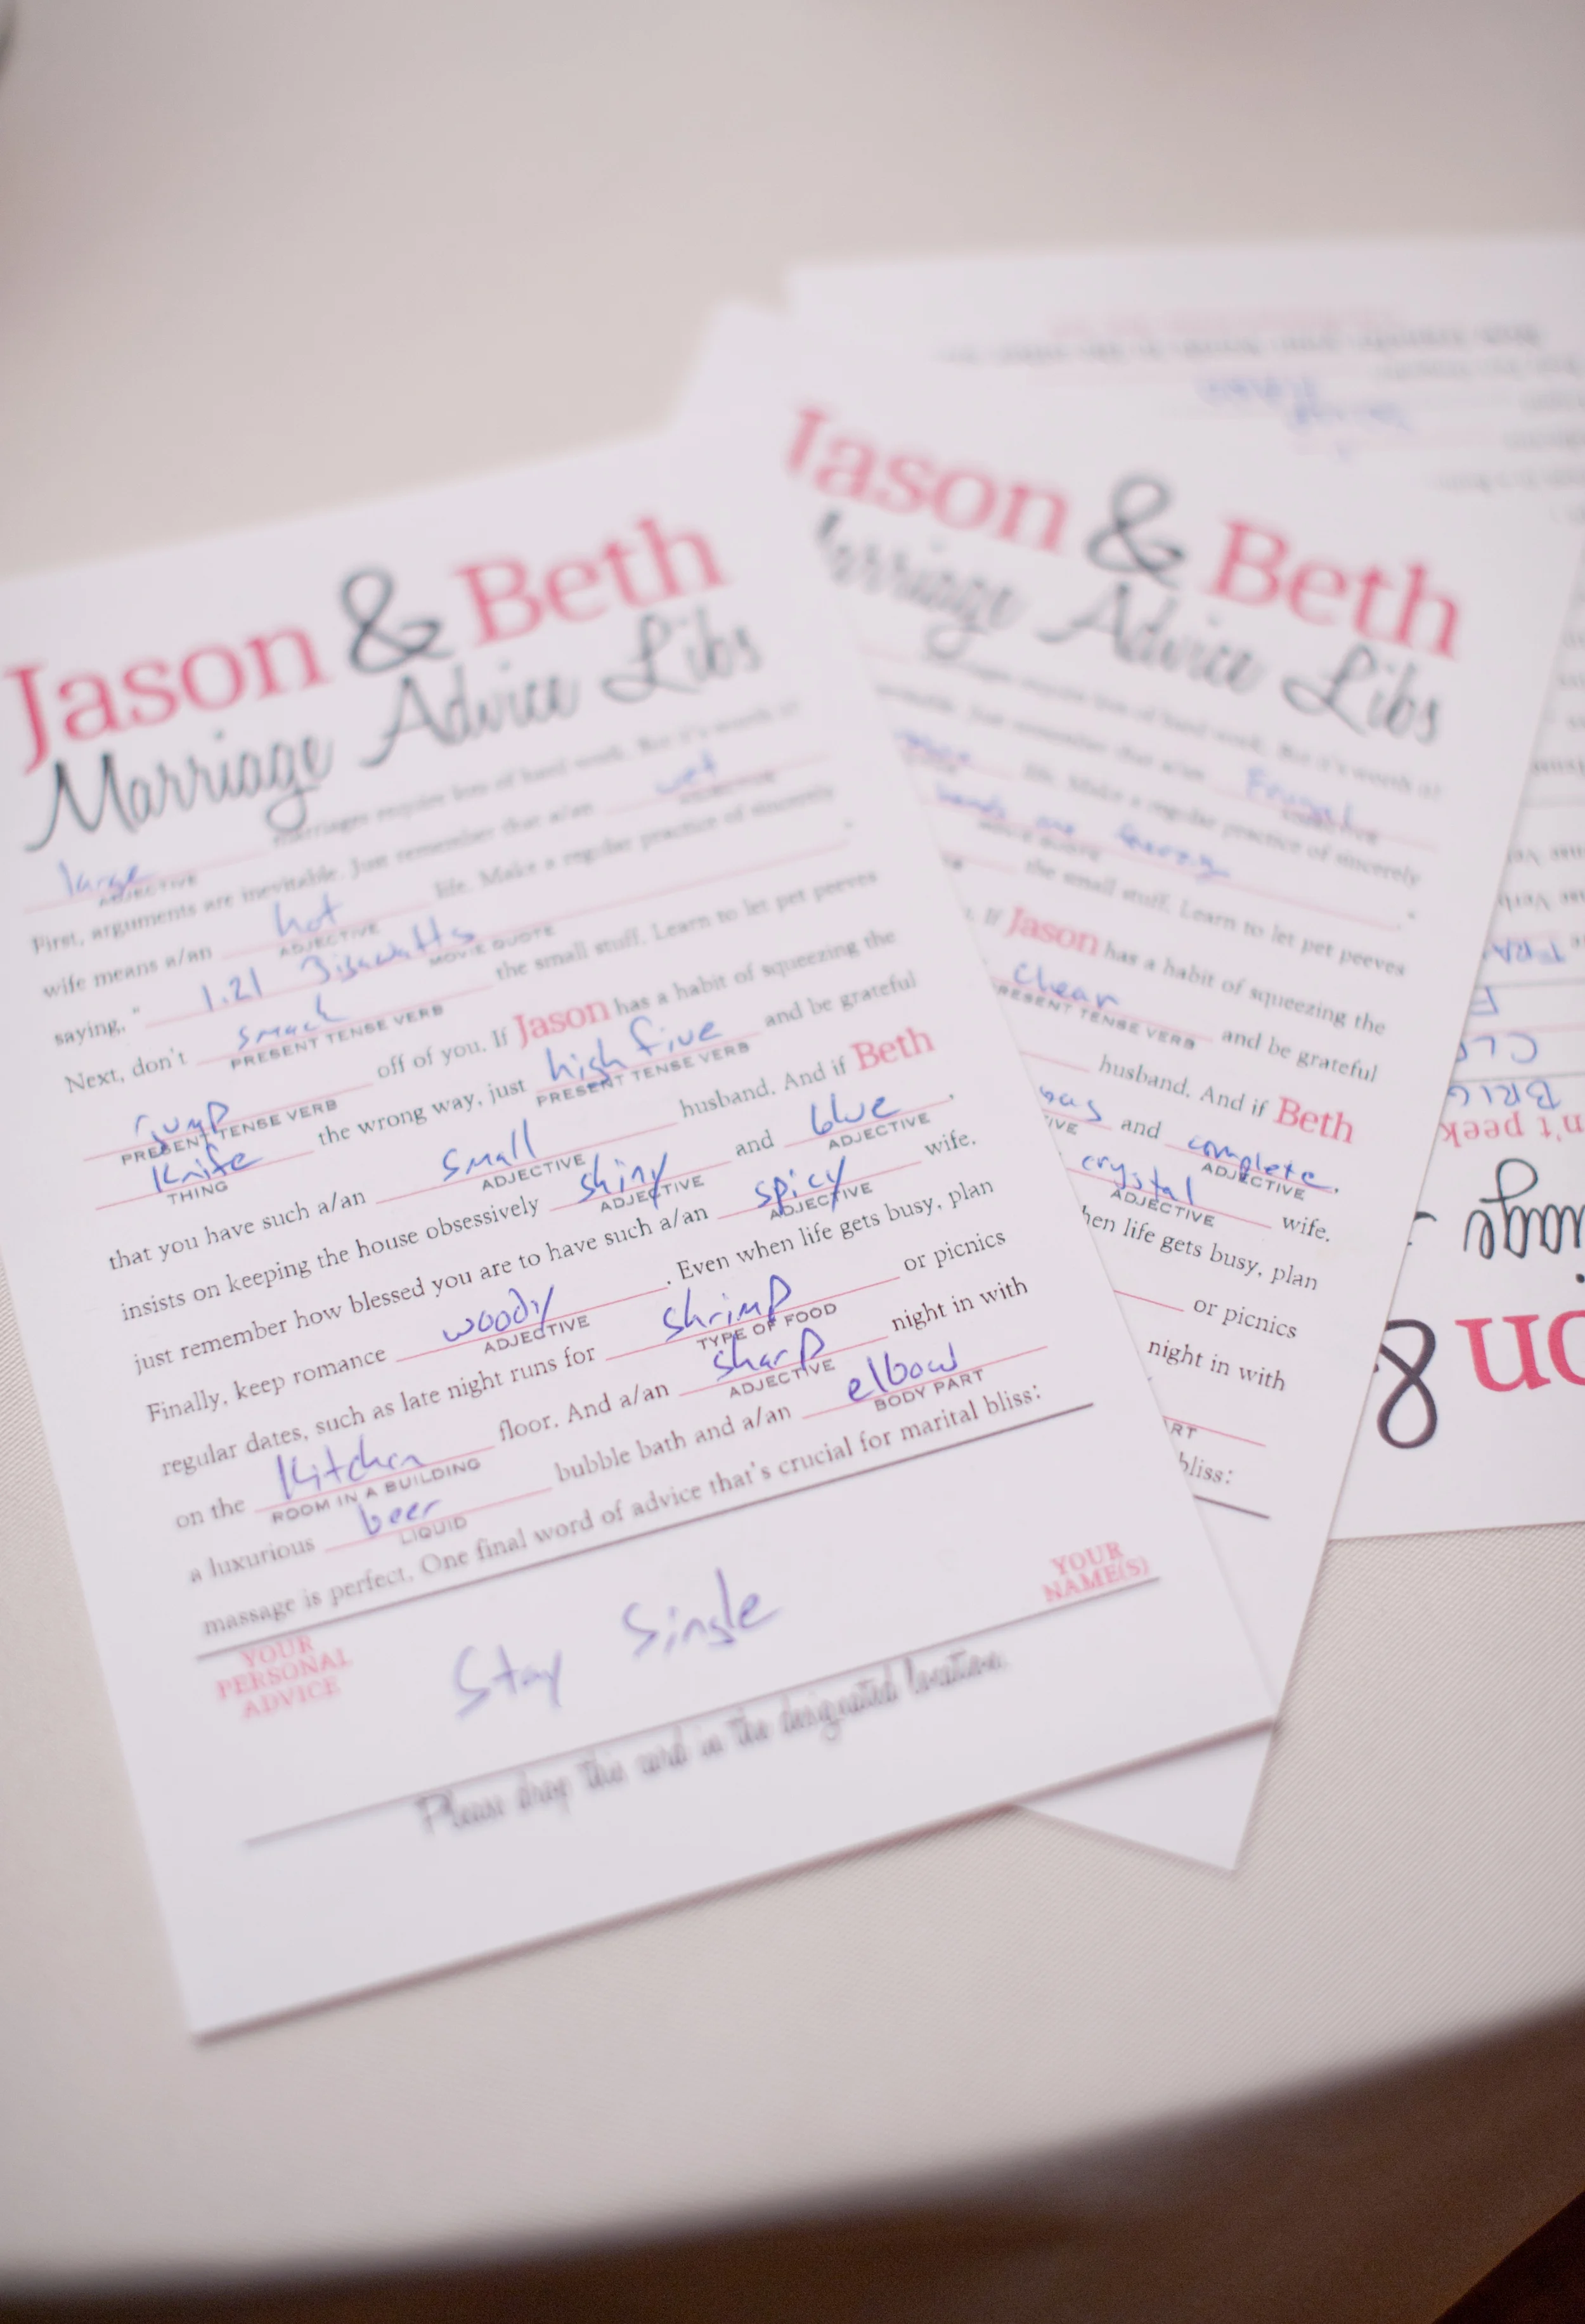 Jason & Beth
Marriage Advice Libs
large marriages require lots of hard work. But it's worth it!
ADJECTIVE
First, arguments are inevitable. Just remember that a/an wet
ADJECTIVE
wife means a/an hot life. Make a regular practice of sincerely
ADJECTIVE
saying, " 1.21 Jigawatts ."
MOVIE QUOTE
Next, don't smack the small stuff. Learn to let pet peeves
PRESENT TENSE VERB
jump off of you. If Jason has a habit of squeezing the
PRESENT TENSE VERB
Knife the wrong way, just high five and be grateful
THING PRESENT TENSE VERB
that you have such a/an small husband. And if Beth
ADJECTIVE
insists on keeping the house obsessively shiny and blue ,
ADJECTIVE ADJECTIVE
just remember how blessed you are to have such a/an spicy wife.
ADJECTIVE
Finally, keep romance woody . Even when life gets busy, plan
ADJECTIVE
regular dates, such as late night runs for shrimp or picnics
TYPE OF FOOD
on the Kitchen floor. And a/an sharp night in with
ROOM IN A BUILDING ADJECTIVE
a luxurious beer bubble bath and a/an elbow
LIQUID BODY PART
massage is perfect. One final word of advice that's crucial for marital bliss:
YOUR PERSONAL ADVICE
Stay Single
YOUR NAME(S)
Please drop this card in the designated location.
Jason & Beth
Marriage Advice Libs
marriages require lots of hard work. But it's worth it!
Just remember that a/an Frugal
ADJECTIVE
life. Make a regular practice of sincerely
MOVIE QUOTE
the small stuff. Learn to let pet peeves
If Jason has a habit of squeezing the
clean and be grateful
PRESENT TENSE VERB
husband. And if Beth
and complete,
ADJECTIVE
crystal wife.
ADJECTIVE
hen life gets busy, plan
or picnics
night in with
RT
bliss:
on &
n't peek
BRIG
CLO